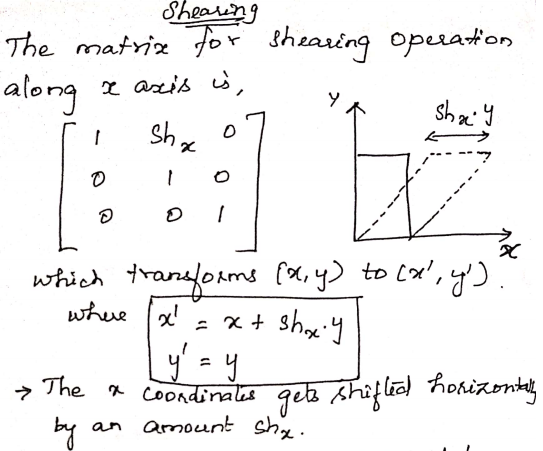 Shearing
The matrix for shearing operation
along x axis is,
[ 1 Sh_x 0
0 1 0
0 0 1 ]
Y
Sh_x·y
x
which transforms (x,y) to (x', y').
where x' = x + sh_x·y
y' = y
→ The x coordinates gets shifted horizontally
by an amount sh_x.